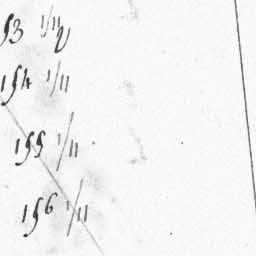 153 1/11
154 1/11
155 1/11
156 1/11